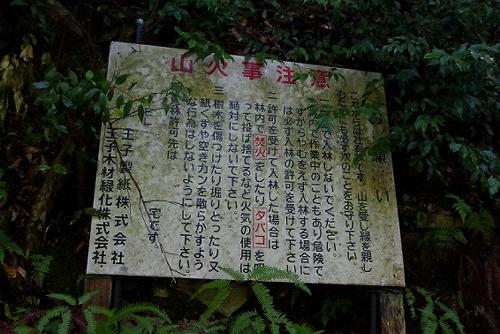 山火事注意
願い
これからは社有林です。山を愛し緑を親し
で入林しないでください。
で作業中のこともあり危険で
すからやむをえず入林する場合に
は必ず入林の許可を受けて下さい
二 許可を受けて入林した場合は
林内で焚火をしたり、タバコを吸
って投げ捨てるなど火気の使用は
絶対にしないで下さい。
三 樹木を傷つけたり掘りとったり又
紙くずや空きカンを散らかすよう
な行為はしないようにして下さい。
林許可先は
宅です。
王子製紙株式会社
王子木材緑化株式会社